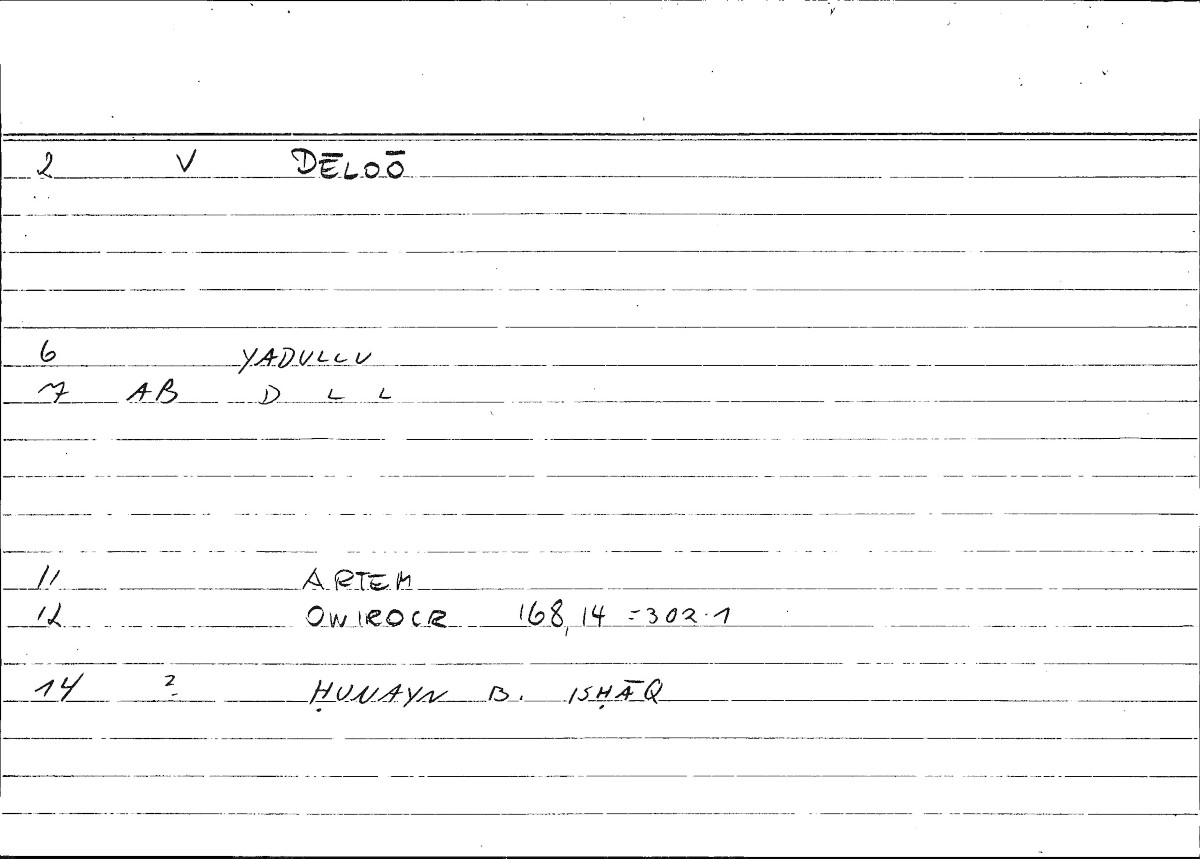 2 V DĒLOŌ
6 YADULLU
7 AB D L L
11 ARTEM
12 OWIROCR 168,14 =302.1
14 ? ḤUNAYN B. ISḤĀQ